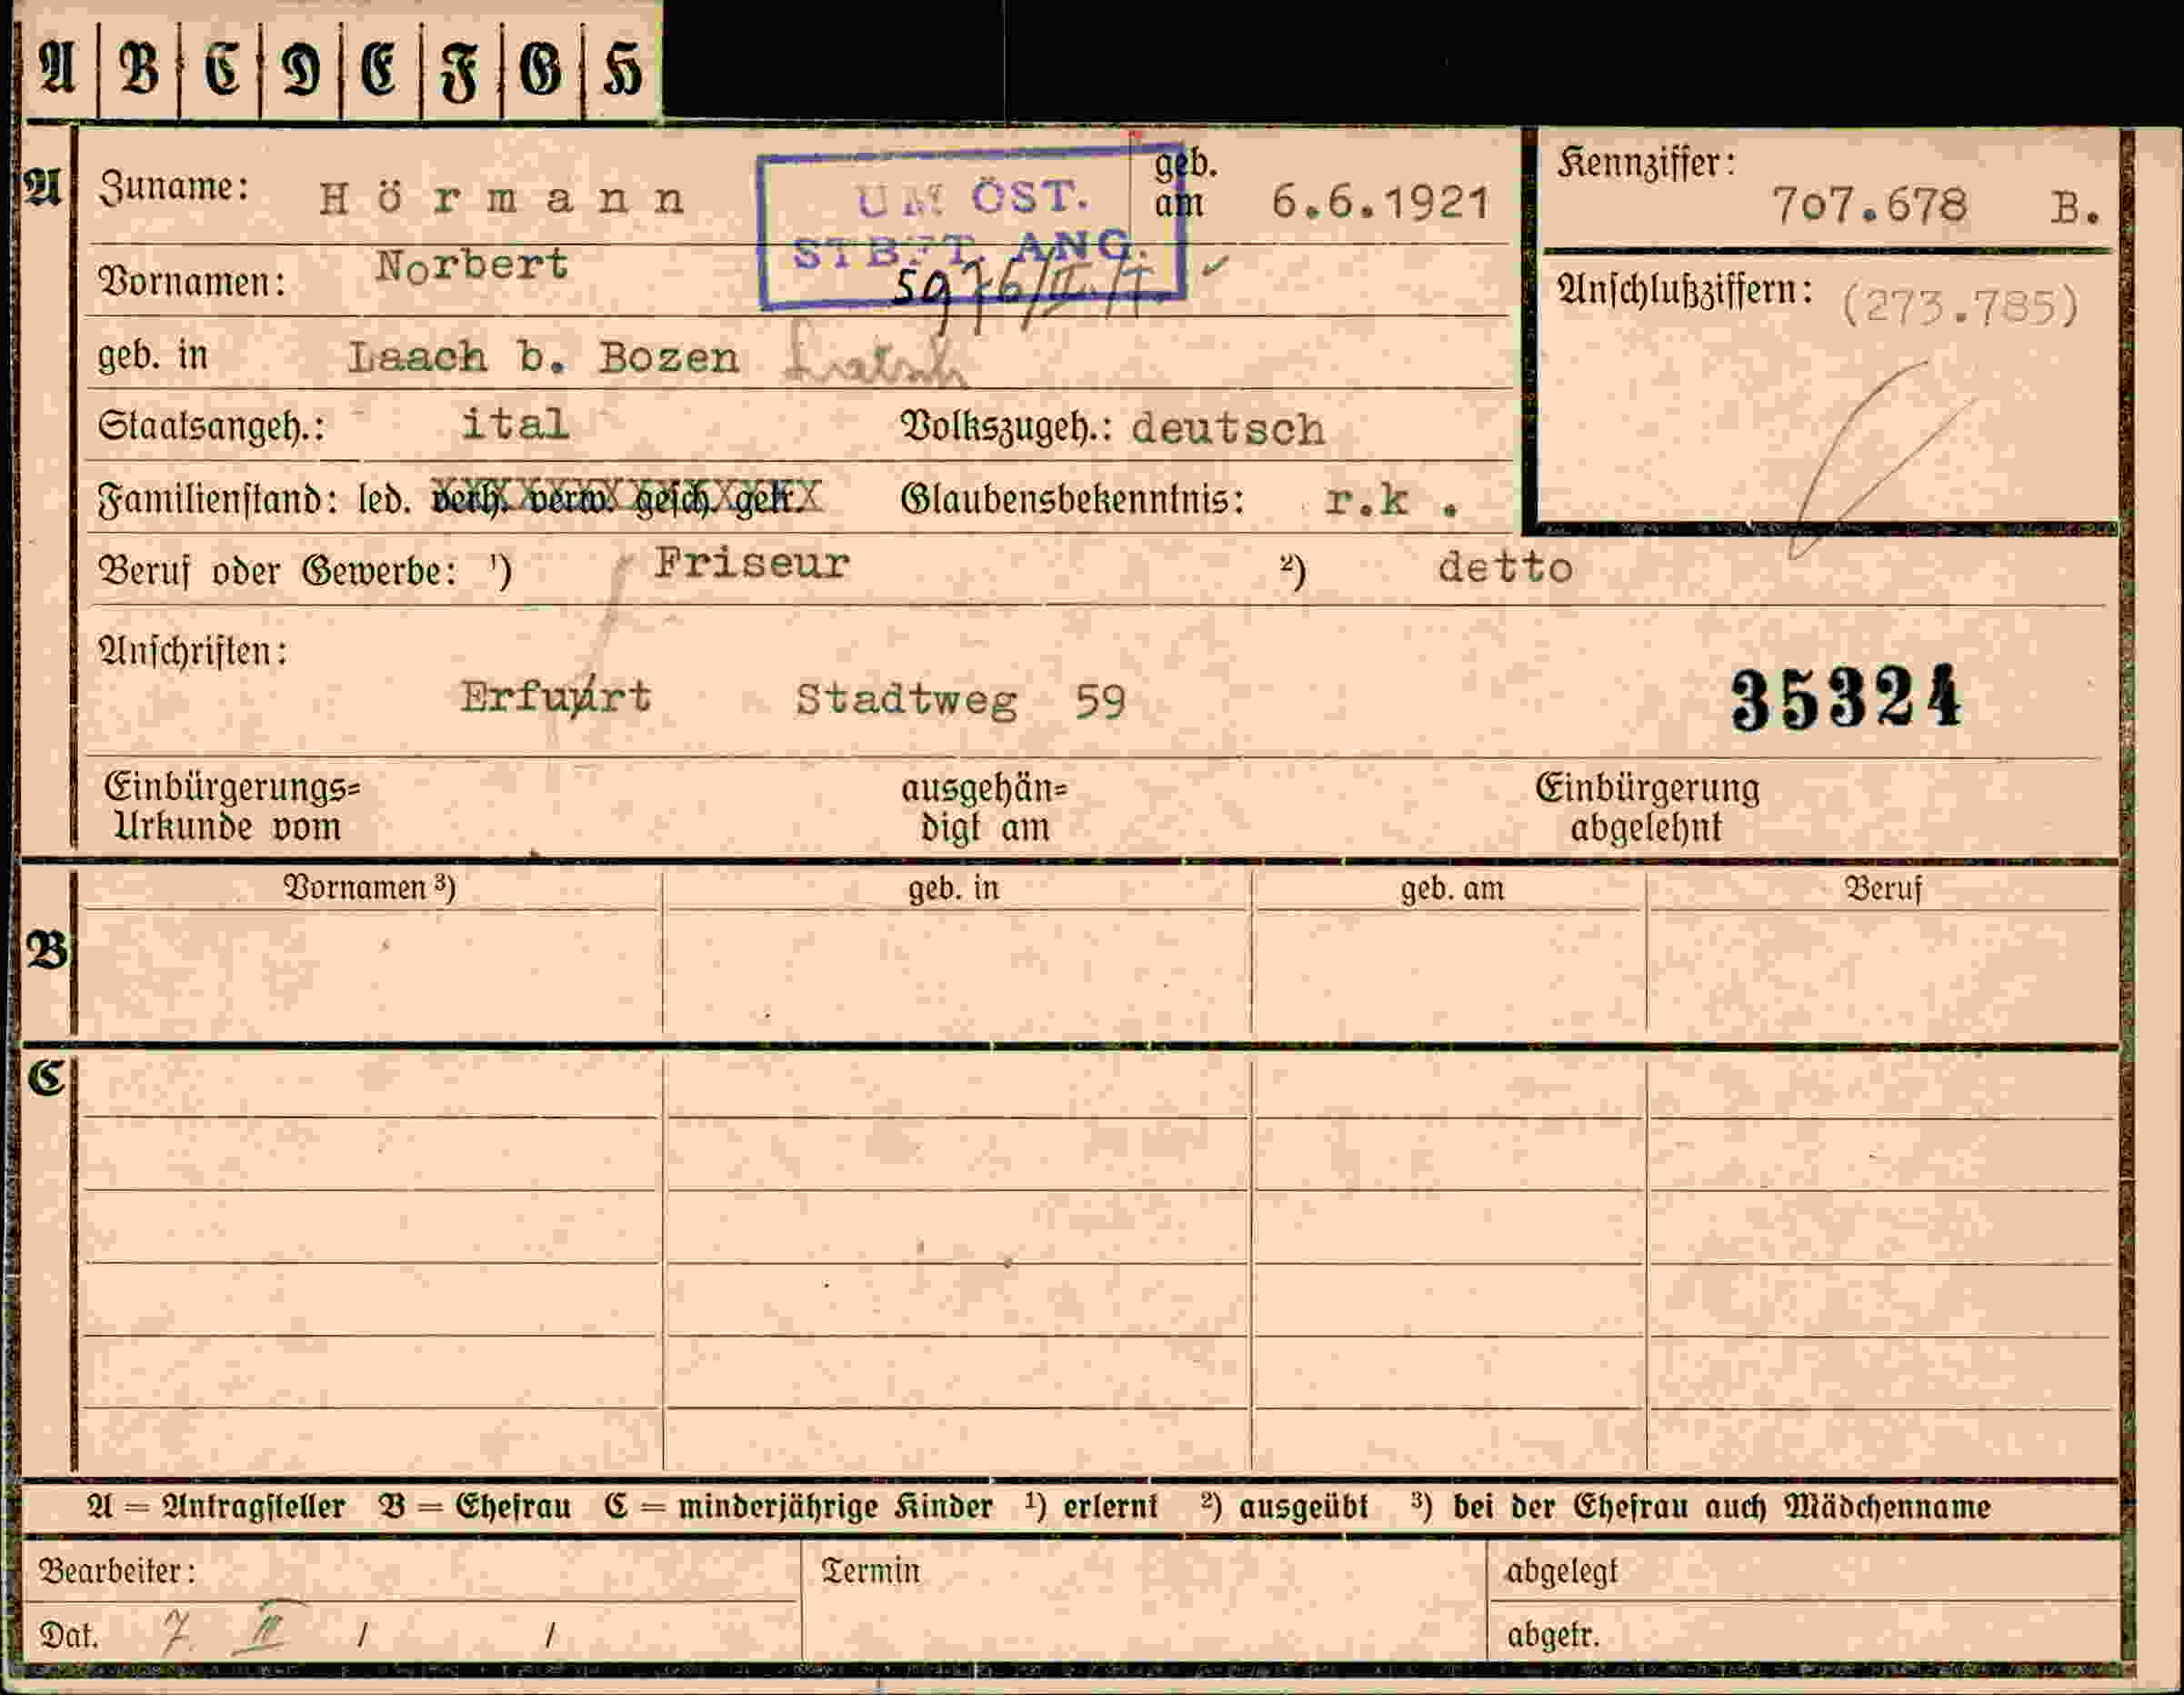 A B C D E F G H
A Zuname: Hörmann geb. am 6.6.1921 Kennziffer: 707.678 B.
UM ÖST.
STBFT. ANG.
Vornamen: Norbert 5976/II./I. Anschlußziffern: (273.785)
geb. in Laach b. Bozen Latsch
Staatsangeh.: ital Volkszugeh.: deutsch
Familienstand: led. verh. verw. gesch. getr. Glaubensbekenntnis: r.k .
Beruf oder Gewerbe: ¹) Friseur ²) detto
Anschriften:
Erfurt Stadtweg 59 35324
Einbürgerungs= ausgehän= Einbürgerung
Urkunde vom digt am abgelehnt
B Vornamen ³) geb. in geb. am Beruf
C
A = Antragsteller B = Ehefrau C = minderjährige Kinder ¹) erlernt ²) ausgeübt ³) bei der Ehefrau auch Mädchenname
Bearbeiter: Termin abgelegt
Dat. 7. II / / abgetr.